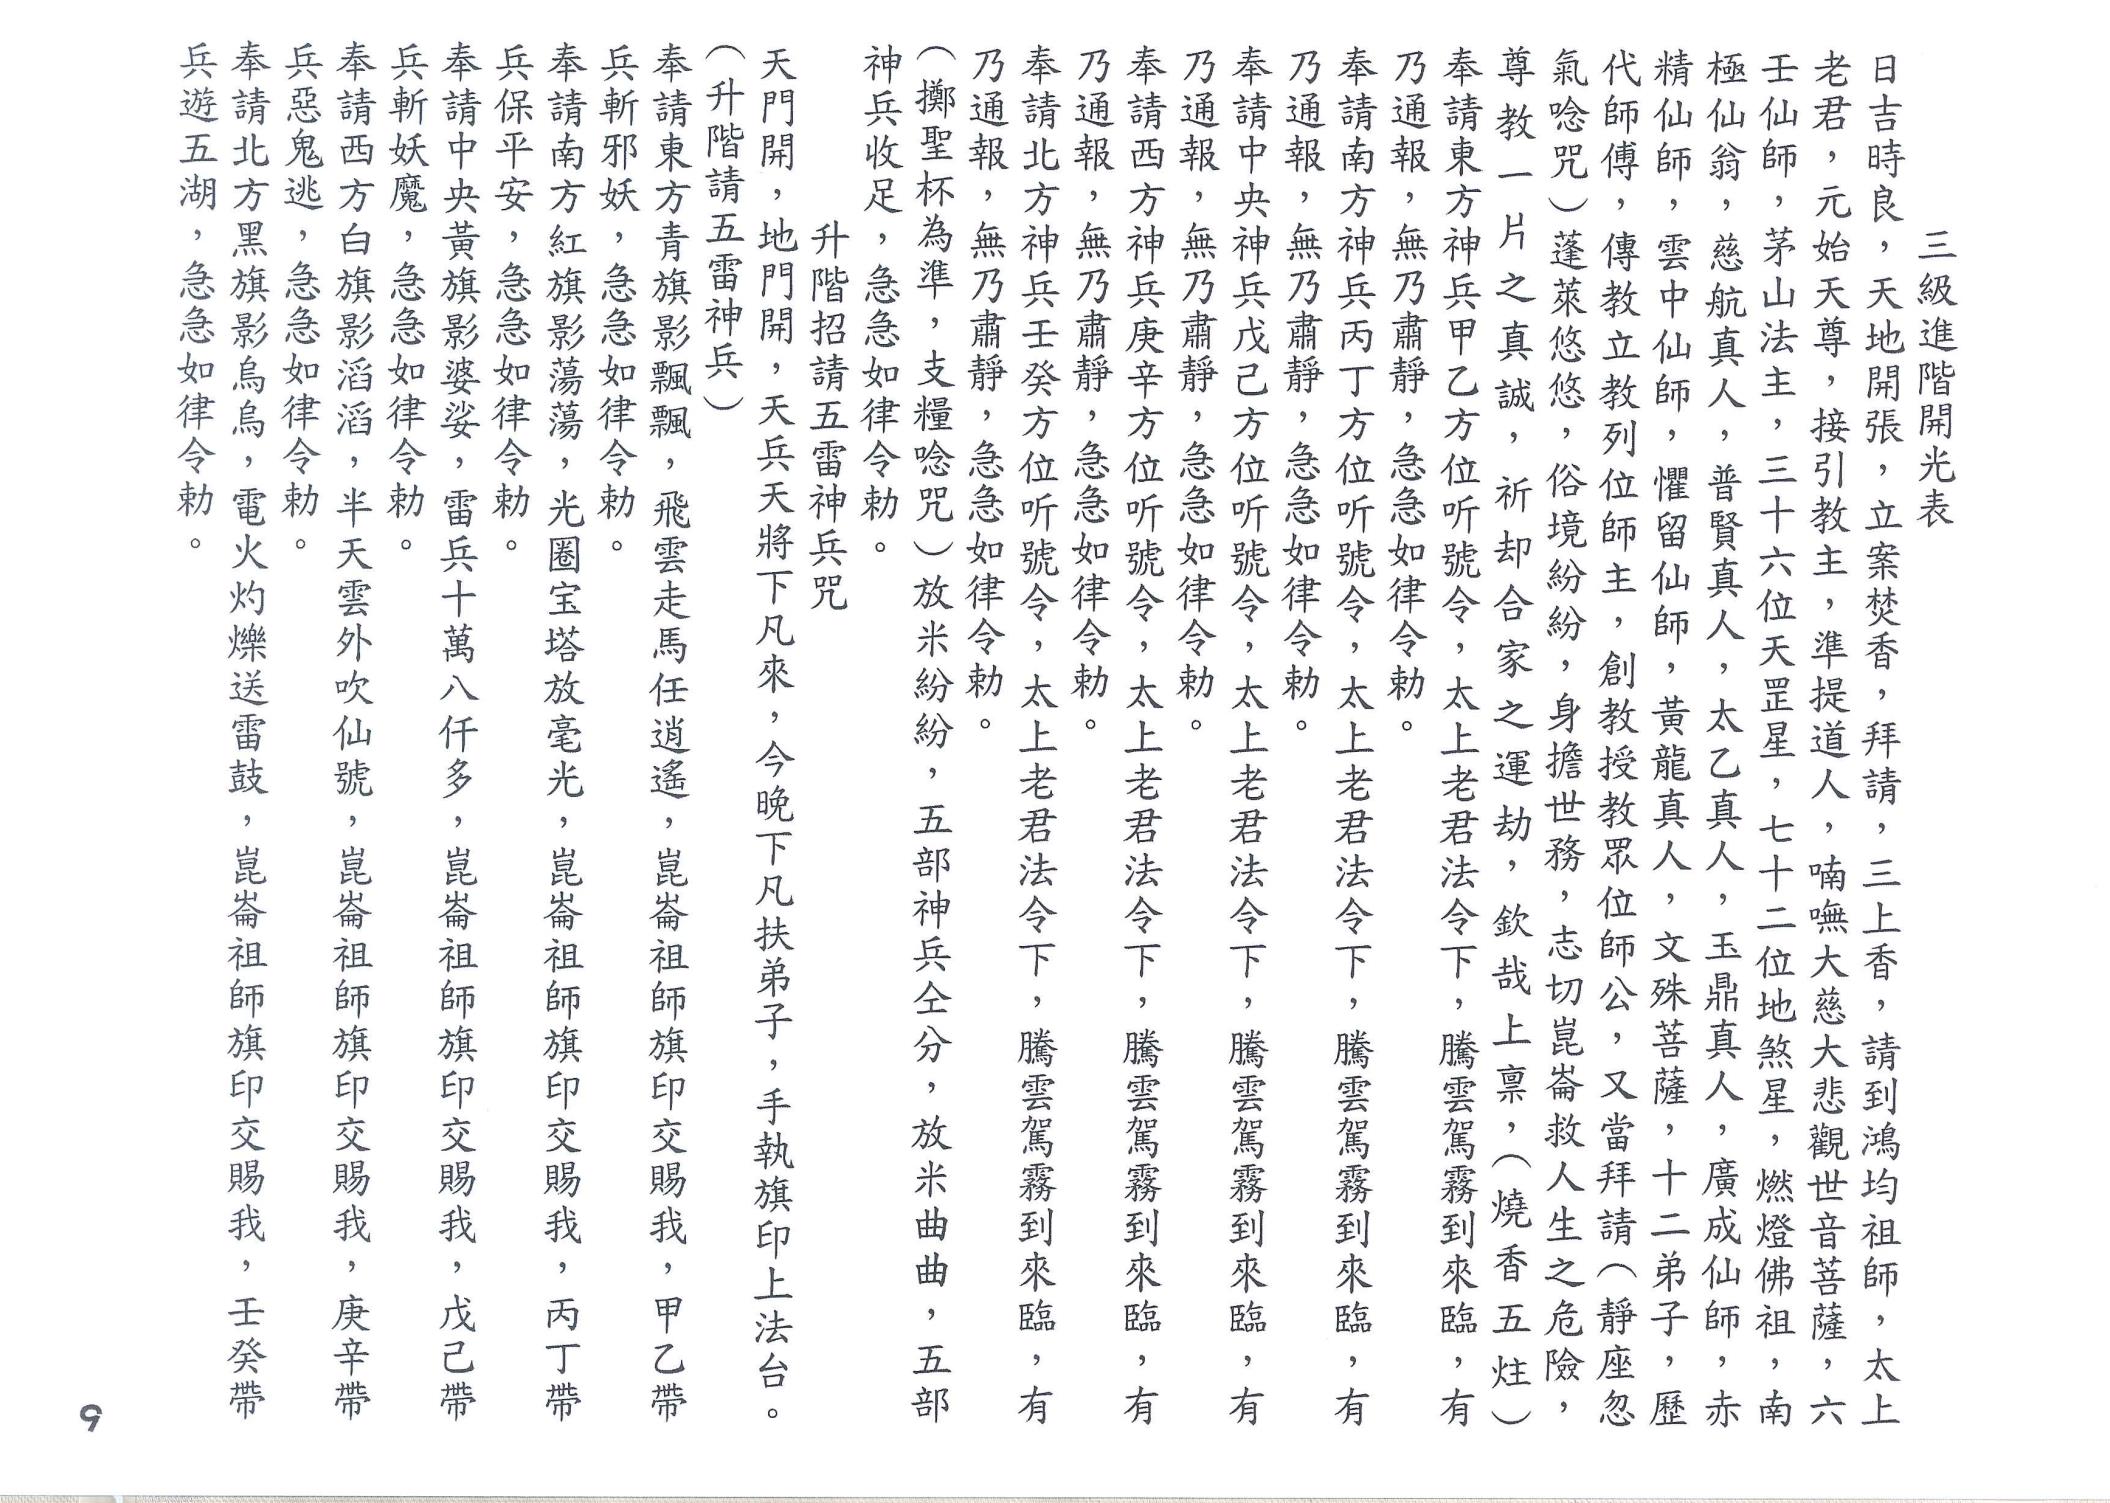 三級進階開光表
日吉時良，天地開張，立案焚香，拜請，三上香，請到鴻均祖師，太上
老君，元始天尊，接引教主，準提道人，喃嘸大慈大悲觀世音菩薩，六
壬仙師，茅山法主，三十六位天罡星，七十二位地煞星，燃燈佛祖，南
極仙翁，慈航真人，普賢真人，太乙真人，玉鼎真人，廣成仙師，赤
精仙師，雲中仙師，懼留仙師，黃龍真人，文殊菩薩，十二弟子，歷
代師傅，傳教立教列位師主，創教授教眾位師公，又當拜請（靜座忽
氣唸咒）蓬萊悠悠，俗境紛紛，身擔世務，志切崑崙救人生之危險，
尊教一片之真誠，祈却合家之運劫，欽哉上禀，（燒香五炷）
奉請東方神兵甲乙方位听號令，太上老君法令下，騰雲駕霧到來臨，有
乃通報，無乃肅靜，急急如律令勅。
奉請南方神兵丙丁方位听號令，太上老君法令下，騰雲駕霧到來臨，有
乃通報，無乃肅靜，急急如律令勅。
奉請中央神兵戊己方位听號令，太上老君法令下，騰雲駕霧到來臨，有
乃通報，無乃肅靜，急急如律令勅。
奉請西方神兵庚辛方位听號令，太上老君法令下，騰雲駕霧到來臨，有
乃通報，無乃肅靜，急急如律令勅。
奉請北方神兵壬癸方位听號令，太上老君法令下，騰雲駕霧到來臨，有
乃通報，無乃肅靜，急急如律令勅。
（擲聖杯為準，支糧唸咒）放米紛紛，五部神兵仝分，放米曲曲，五部
神兵收足，急急如律令勅。
升階招請五雷神兵咒
天門開，地門開，天兵天將下凡來，今晚下凡扶弟子，手執旗印上法台。
（升階請五雷神兵）
奉請東方青旗影飄飄，飛雲走馬任逍遙，崑崙祖師旗印交賜我，甲乙帶
兵斬邪妖，急急如律令勅。
奉請南方紅旗影蕩蕩，光圈宝塔放毫光，崑崙祖師旗印交賜我，丙丁帶
兵保平安，急急如律令勅。
奉請中央黃旗影婆娑，雷兵十萬八仟多，崑崙祖師旗印交賜我，戊己帶
兵斬妖魔，急急如律令勅。
奉請西方白旗影滔滔，半天雲外吹仙號，崑崙祖師旗印交賜我，庚辛帶
兵惡鬼逃，急急如律令勅。
奉請北方黑旗影烏烏，電火灼爍送雷鼓，崑崙祖師旗印交賜我，壬癸帶
兵遊五湖，急急如律令勅。
9